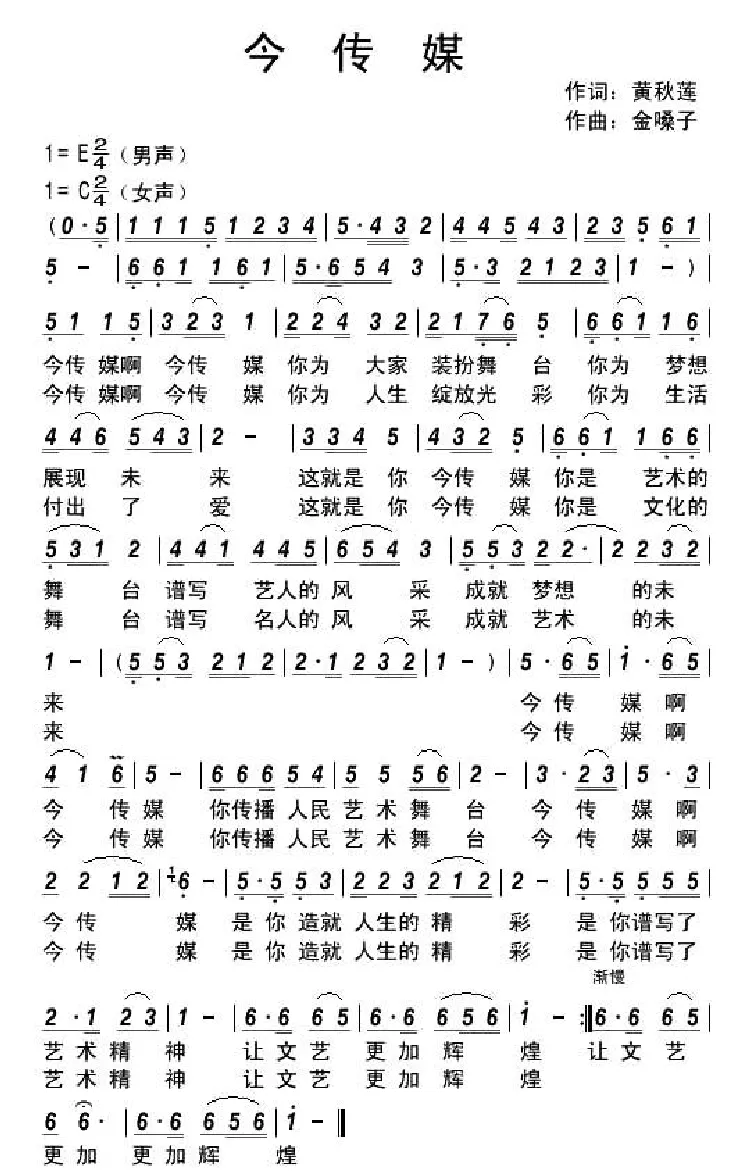 今 传 媒
作词：黄秋莲
作曲：金嗓子
1=E 2/4（男声）
1=C 2/4（女声）
(0·5|1115 1234|5·432|44543|235 61|
5 -|661 161|5·654 3|5·3 2123|1 -)|
51 15|323 1|224 32|2176 5|661 16|
今传 媒啊 今传 媒 你为 大家 装扮舞 台 你为 梦想
今传 媒啊 今传 媒 你为 人生 绽放光 彩 你为 生活
446 543|2 -|334 5|432 5|661 166|
展现 未 来 这就是 你 今传 媒 你是 艺术的
付出 了 爱 这就是 你 今传 媒 你是 文化的
531 2|441 445|654 3|553 22·|2232|
舞 台 谱写 艺人的 风 采 成就 梦想 的未
舞 台 谱写 名人的 风 采 成就 艺术 的未
1 -|(553 212|2·1 232|1 -)|5·65|1·65|
来 今传 媒啊
来 今传 媒啊
41 6|5 -|666 54|5 5 56|2 -|3·23|5·3|
今 传媒 你传播 人民 艺术舞 台 今传 媒啊
今 传媒 你传播 人民 艺术舞 台 今传 媒啊
2 2 12|6 -|5·5 53|223 212|2 -|5·5 555|
今传 媒 是你 造就 人生的 精 彩 是你谱写了
今传 媒 是你 造就 人生的 精 彩 是你谱写了
渐慢
2·1 23|1 -|6·6 65|6·6 656|1 -:‖6·6 65|
艺术精 神 让文艺 更加辉 煌 让文艺
艺术精 神 让文艺 更加辉 煌
6 6·|6·6 656|1 -‖
更加 更加辉 煌